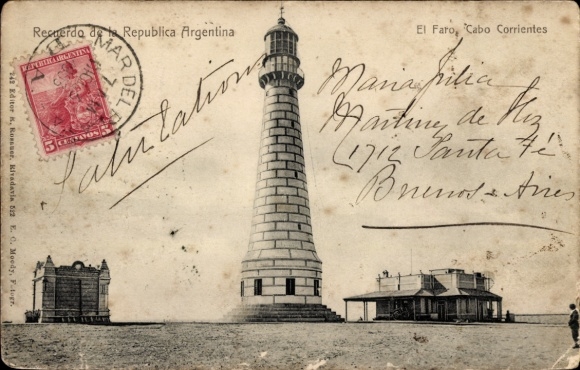 Recuerdo de la Republica Argentina
El Faro, Cabo Corrientes
MAR DEL P
REPUBLICA ARGENTINA
5 CENTAVOS 5
Salutations
Maria Julia
Martinez de Hoz
1712 Santa Fé
Buenos-Aires
242 Editor R. Rosauer, Rivadavia 522 E. C. Moody, Fotogr.